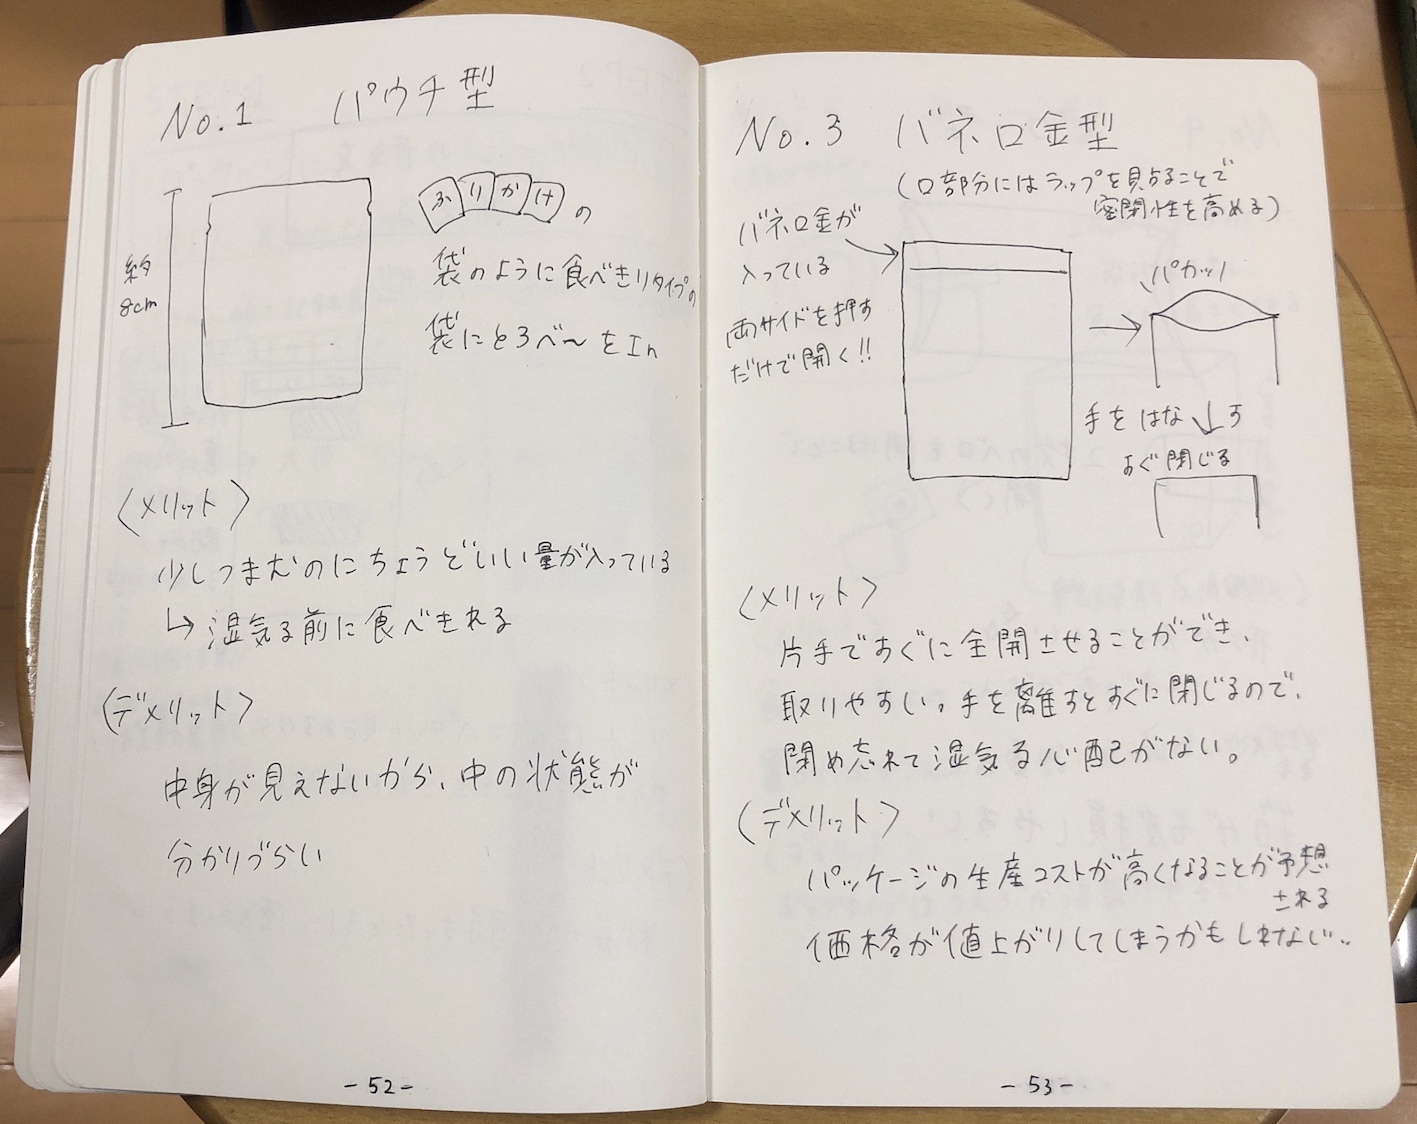 No.1 パウチ型
約
8cm
ふりかけの
袋のように食べきりタイプの
袋にとろべ〜をIn
〈メリット〉
少しつまむのにちょうどいい量が入っている
↳ 湿気る前に食べきれる
〈デメリット〉
中身が見えないから、中の状態が
分かりづらい
-52-
No.3 バネ口金型
(口部分にはラップを貼ることで
密閉性を高める)
バネ口金が
入っている
両サイドを押す
だけで開く!!
パカッ
手をはなす
すぐ閉じる
〈メリット〉
片手ですぐに全開させることができ、
取りやすい。手を離すとすぐに閉じるので、
閉め忘れて湿気る心配がない。
〈デメリット〉
パッケージの生産コストが高くなることが予想
される
価格が値上がりしてしまうかもしれない..
-53-